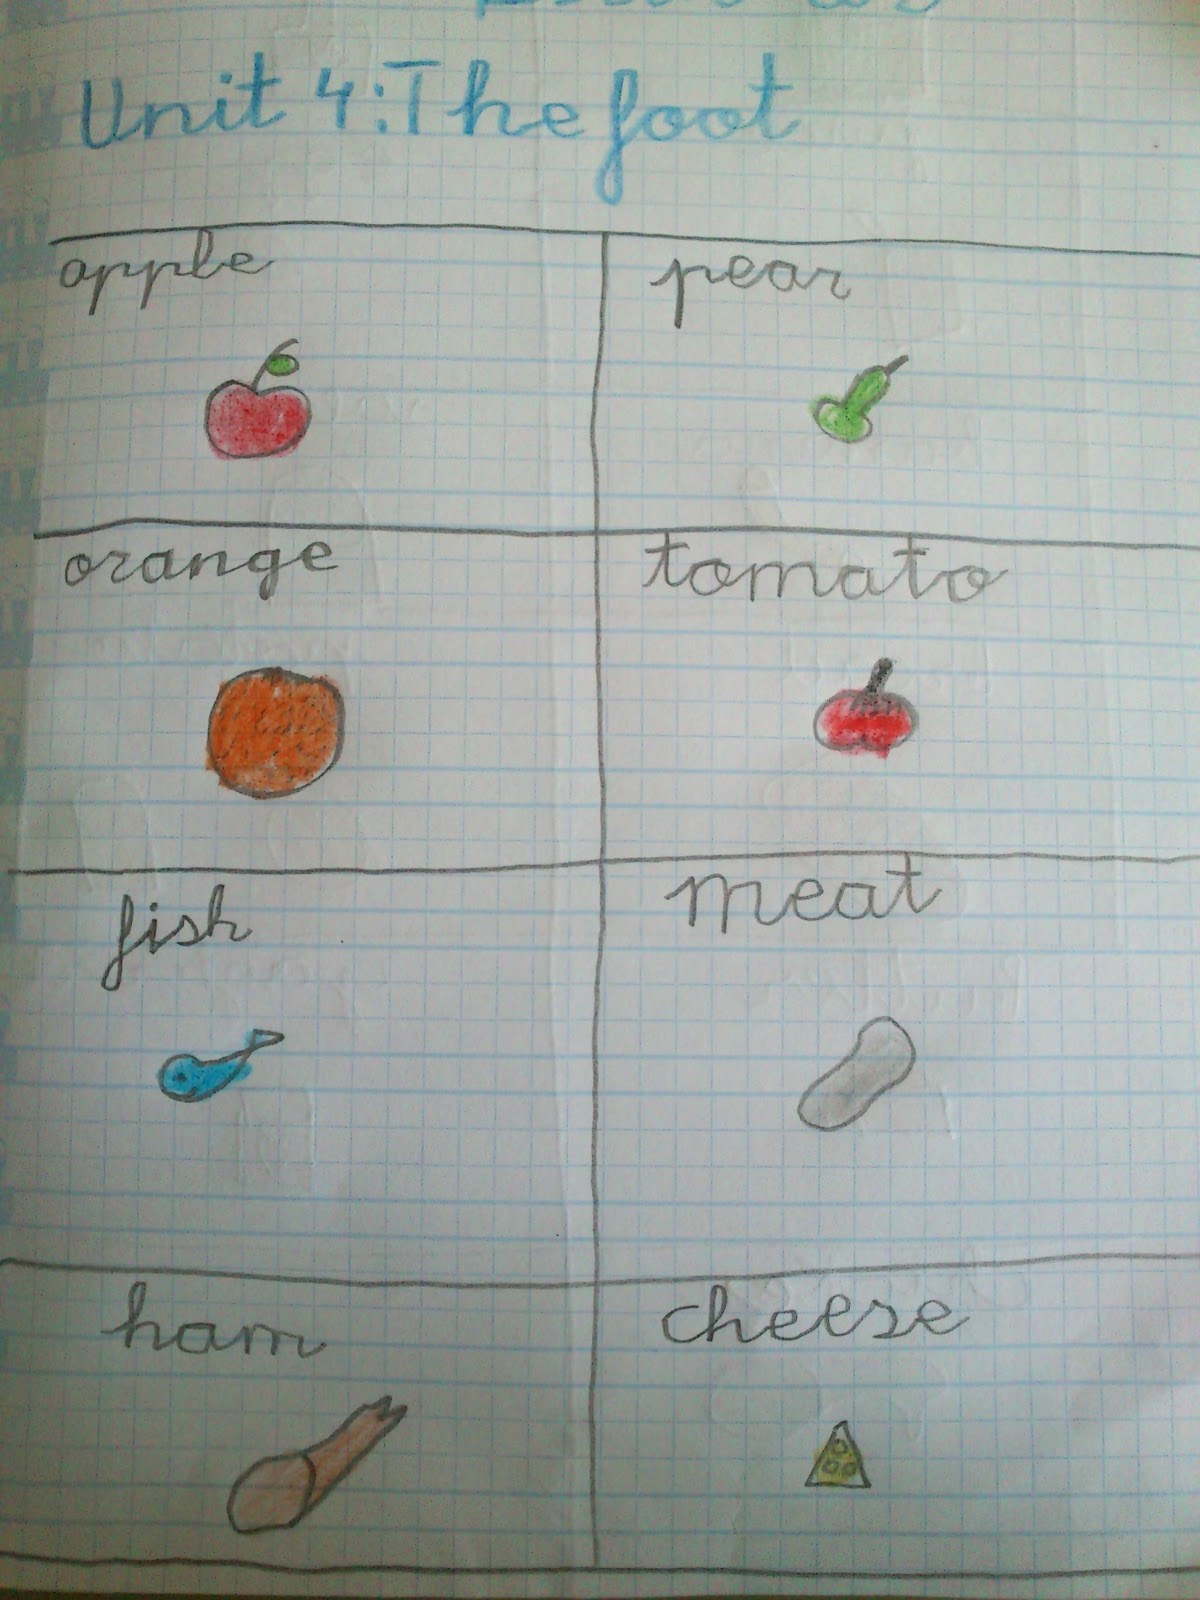 Unit 4: The foot
apple
pear
orange
tomato
fish
meat
ham
cheese